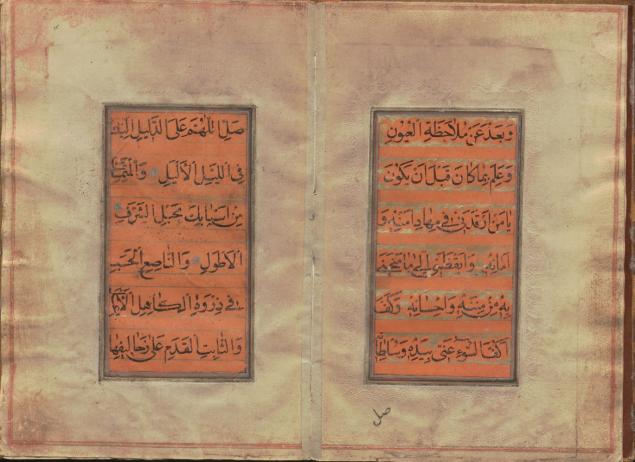 وَبَعُدَ عَنْ مُلَاحَظَةِ الْعُيُونِ
وَعَلِمَ بِمَا كَانَ قَبْلَ اَنْ يَكُونَ
يَا مَنْ اَرْقَدَنِي فِي مِهَادِ اَمْنِهِ وَ
اَمَانِهِ وَاَيْقَظَنِي اِلَى مَا مَنَحَنِي
بِهِ مِنْ مِنَنِهِ وَاِحْسَانِهِ وَكَفَّ
اَكُفَّ السُّوءِ عَنِّي بِيَدِهِ وَسُلْطَانِهِ
صل
صَلِّ اللّٰهُمَّ عَلَى الدَّلِيلِ اِلَيْكَ
فِي اللَّيْلِ الْاَلْيَلِ وَالْمُتَمَسِّكِ
مِنْ اَسْبَابِكَ بِحَبْلِ الشَّرَفِ
الْاَطْوَلِ وَالنَّاصِعِ الْحَسَبِ
فِي ذِرْوَةِ الْكَاهِلِ الْاَعْبَلِ
وَالثَّابِتِ الْقَدَمِ عَلَى زَحَالِيفِهَا